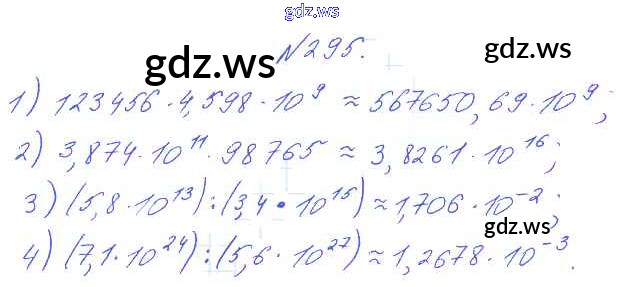 gdz.ws
№295.
gdz.ws
gdz.ws
1) 123456·4,598·10⁹ ≈ 567650,69·10⁹;
2) 3,874·10¹¹·98765 ≈ 3,8261·10¹⁶;
3) (5,8·10¹³):(3,4·10¹⁵) ≈ 1,706·10⁻²;
gdz.ws
4) (7,1·10²⁴):(5,6·10²⁷) ≈ 1,2678·10⁻³.
gdz.ws